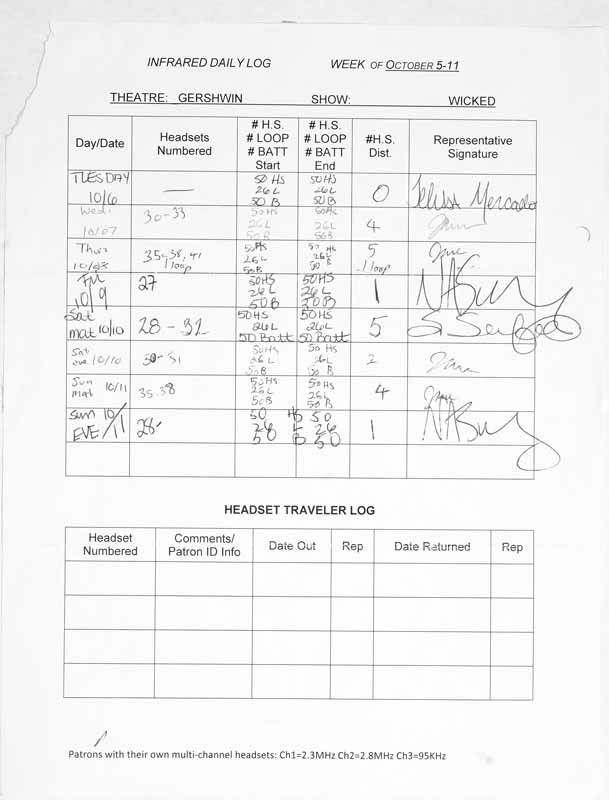 INFRARED DAILY LOG WEEK OF OCTOBER 5-11
THEATRE: GERSHWIN SHOW: WICKED
Day/Date Headsets Numbered # H.S. # LOOP # BATT Start # H.S. # LOOP # BATT End #H.S. Dist. Representative Signature
TUESDAY 10/6 — 50 HS 26 L 50 B 50 HS 26 L 50 B 0 Mercado
Wed. 10/07 30-33 50 HS 26 L 50 B 50 HS 26 L 50 B 4
Thurs 10/08 35-38, 41 1 loop 50 HS 26 L 50 B 50 HS 26 L 50 B 5 1 loop
Fri 10/9 27 50 HS 26 L 50 B 50 HS 26 L 50 B 1
Sat mat 10/10 28-32 50 HS 26 L 50 Batt 50 HS 26 L 50 Batt 5
Sat eve 10/10 30-31 50 HS 26 L 50 B 50 HS 26 L 50 B 2
Sun mat 10/11 35-38 50 HS 26 L 50 B 50 HS 26 L 50 B 4
Sun 10/11 EVE 28- 50 HS 26 L 50 B 50 26 50 1
HEADSET TRAVELER LOG
Headset Numbered Comments/ Patron ID Info Date Out Rep Date Returned Rep
Patrons with their own multi-channel headsets: Ch1=2.3MHz Ch2=2.8MHz Ch3=95KHz